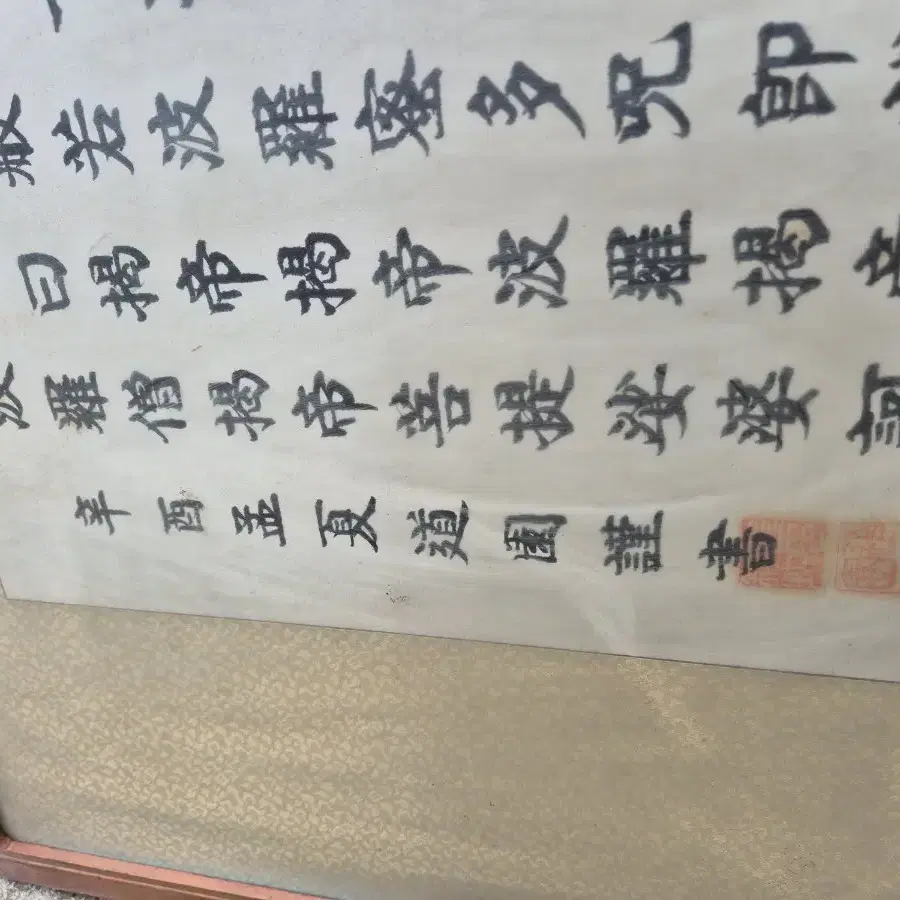 般若波羅蜜多咒即
曰揭帝揭帝波羅揭帝
波羅僧揭帝菩提娑婆訶
辛酉孟夏道園謹書